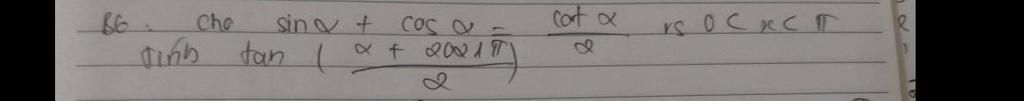 B6: Cho sin α + cos α = cot α / 2 vs 0 < x < π
Tính tan ( α + 2021π / 2 )